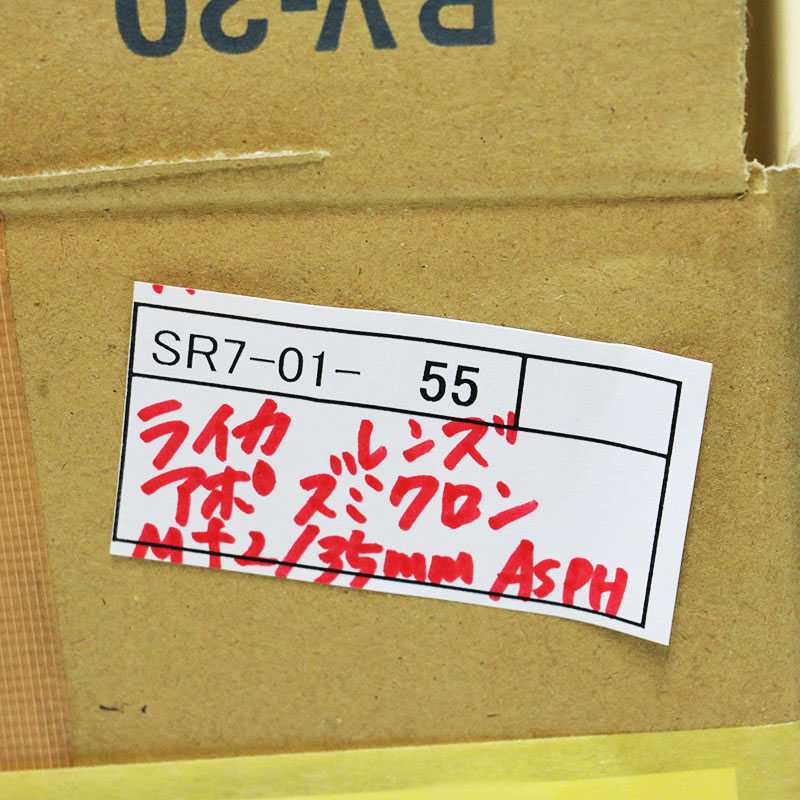 RV-20
SR7-01- 55
ライカ レンズ
アポ ズミクロン
M+2/35mm ASPH